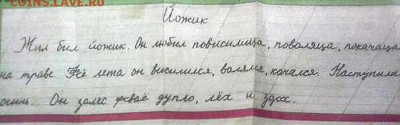 COINS.LAVE.RU
Йожик
Жил был йожик. Он любил повисилица, поволяца, покачаца
на траве. Всё лета он висилился, волялся, качался. Наступила
осинь. Он залес своё дупло, лёх и здох.